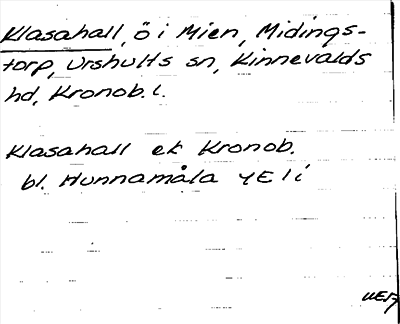 Klasahall, ö i Mien, Midings-
torp, Urshults sn, Kinnevalds
hd, Kronob. l.
Klasahall ek Kronob.
bl. Hunnamåla 4E1i